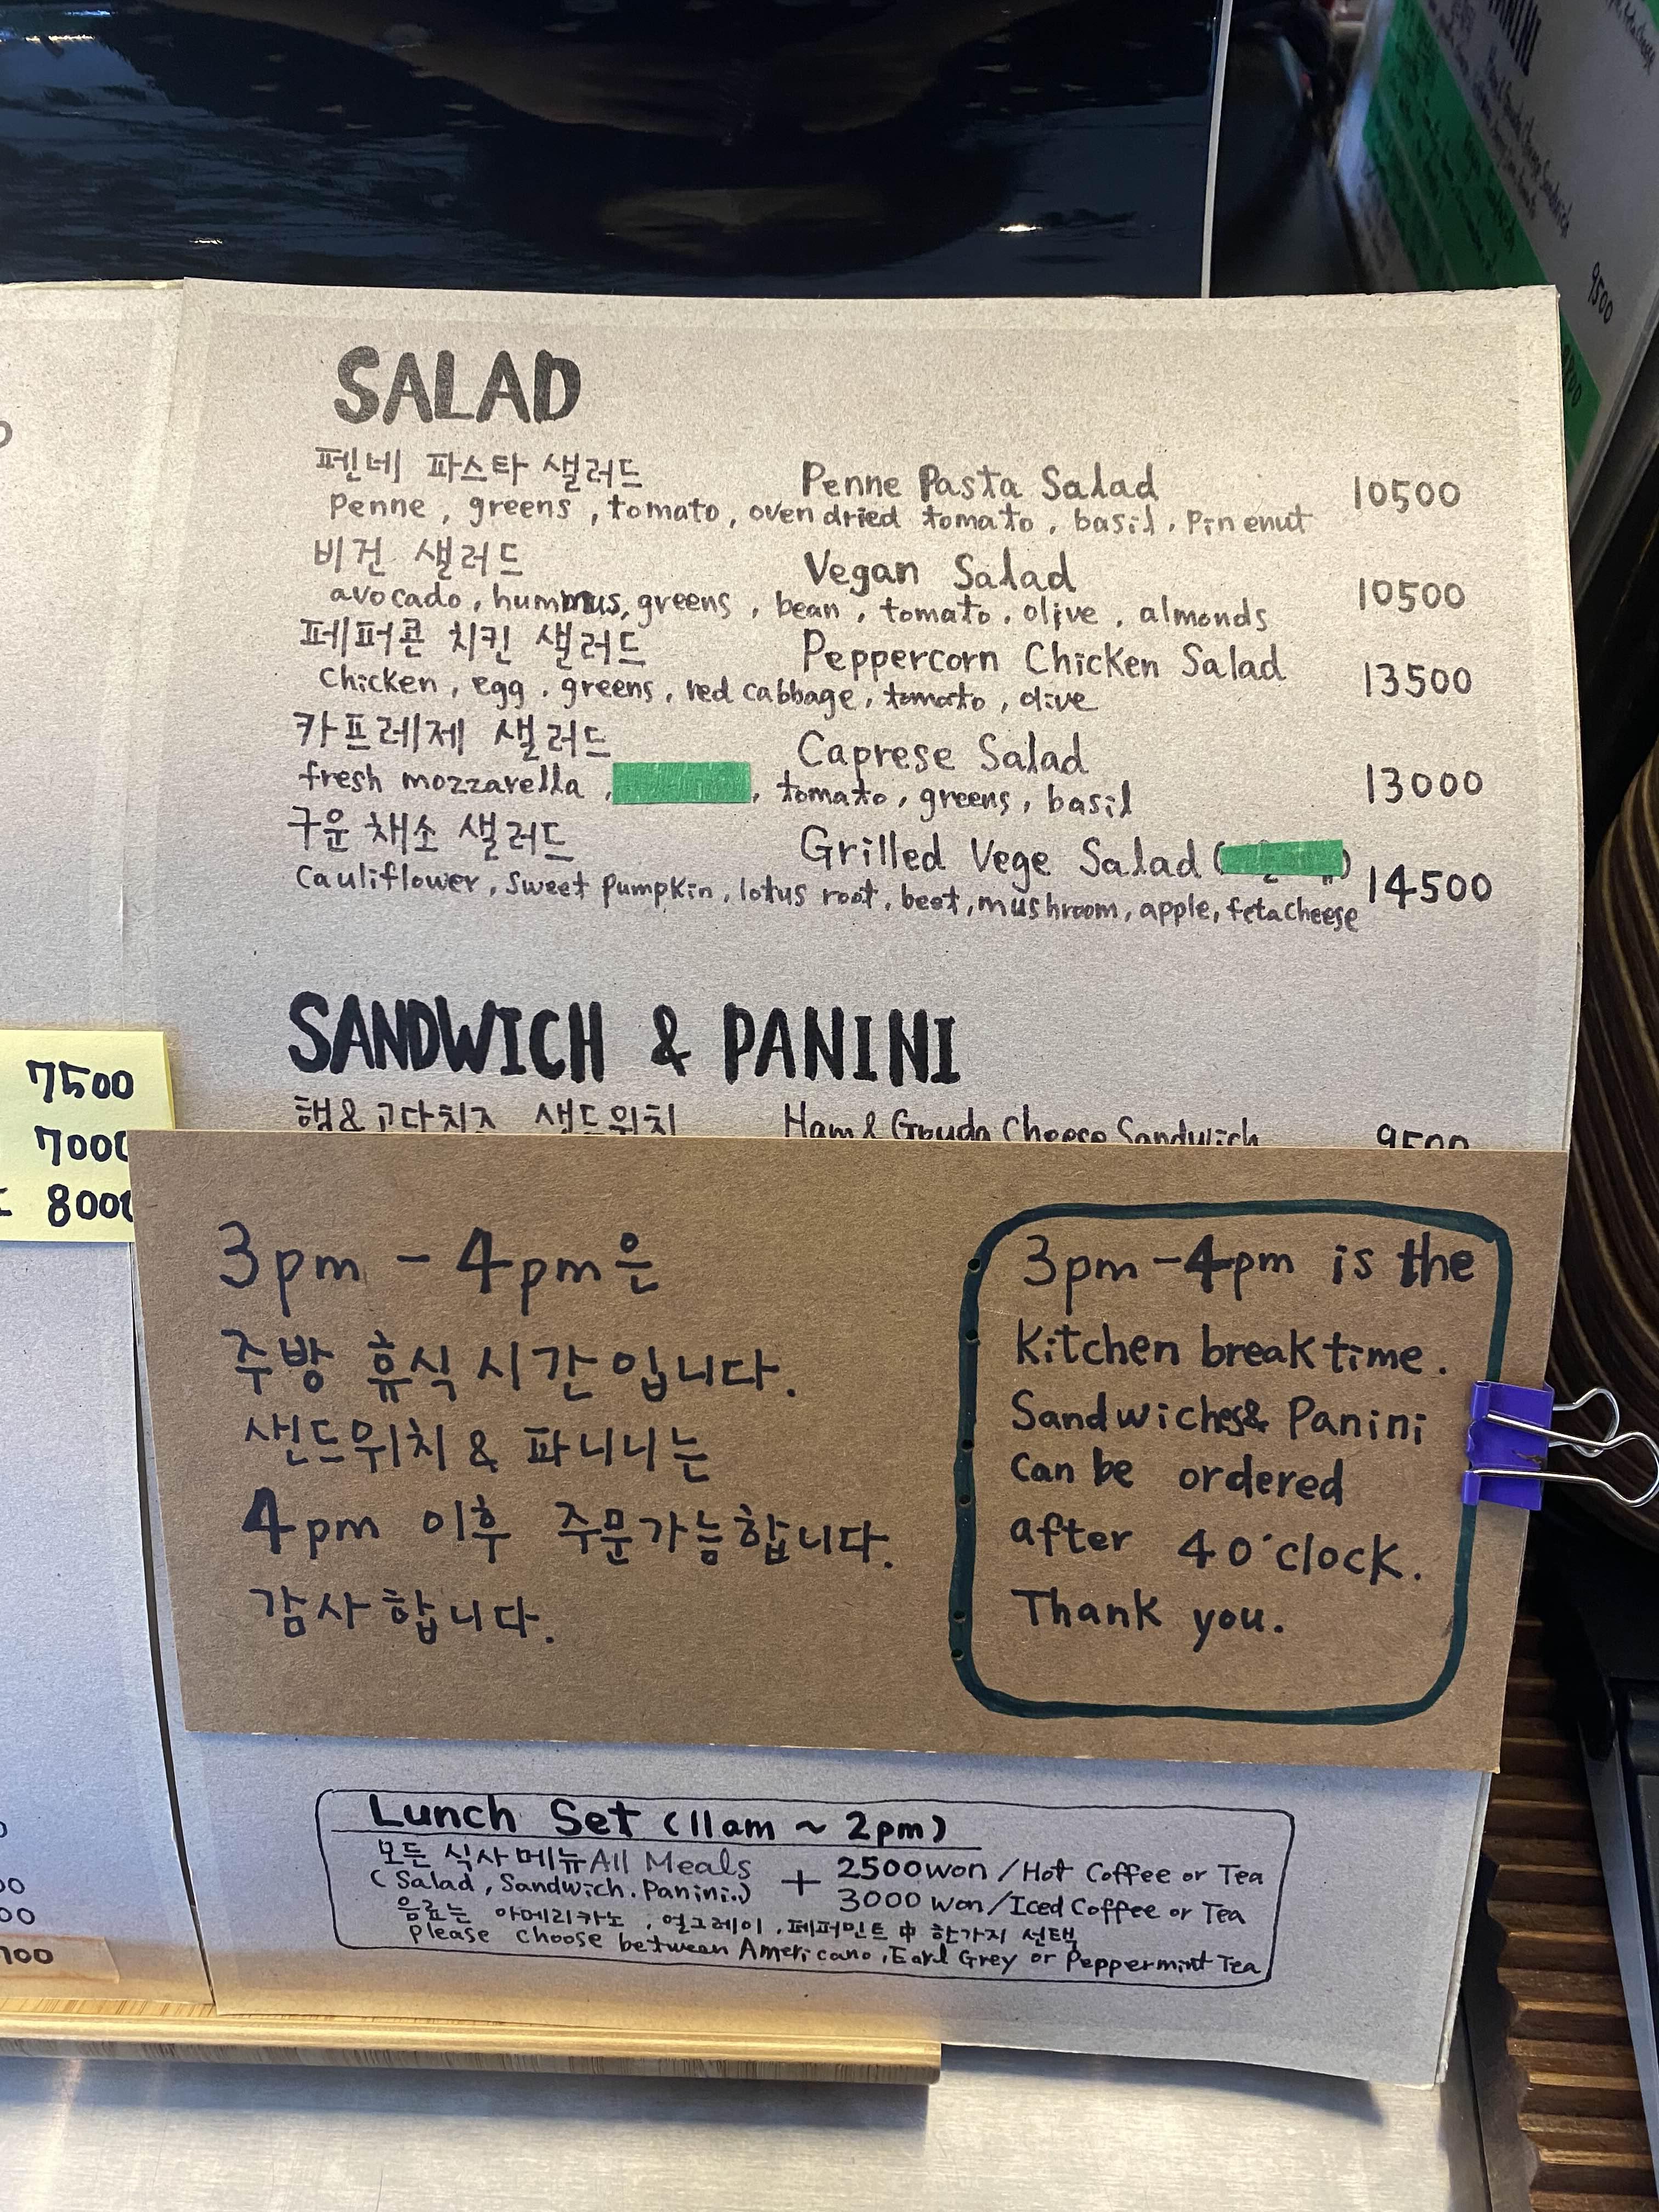 SALAD
펜네 파스타 샐러드 Penne Pasta Salad 10500
Penne, greens, tomato, oven dried tomato, basil, Pinenut
비건 샐러드 Vegan Salad 10500
avocado, hummus, greens, bean, tomato, olive, almonds
페퍼콘 치킨 샐러드 Peppercorn Chicken Salad 13500
Chicken, egg, greens, red cabbage, tomato, olive
카프레제 샐러드 Caprese Salad 13000
fresh mozzarella, , tomato, greens, basil
구운 채소 샐러드 Grilled Vege Salad ( ) 14500
Cauliflower, Sweet pumpkin, lotus root, beet, mushroom, apple, feta cheese
SANDWICH & PANINI
햄&고다치즈 샌드위치 Ham & Gouda Cheese Sandwich 9500
7500
7000
8000
3pm - 4pm은
주방 휴식 시간입니다.
샌드위치 & 파니니는
4pm 이후 주문가능합니다.
감사합니다.
3pm-4pm is the
Kitchen break time.
Sandwiches& Panini
can be ordered
after 4 o'clock.
Thank you.
Lunch Set (11am ~ 2pm)
모든 식사메뉴 All Meals + 2500won / Hot Coffee or Tea
(Salad, Sandwich. Panini..) 3000 won / Iced Coffee or Tea
음료는 아메리카노, 얼그레이, 페퍼민트 中 한가지 선택
Please choose between Americano, Earl Grey or Peppermint Tea
9500